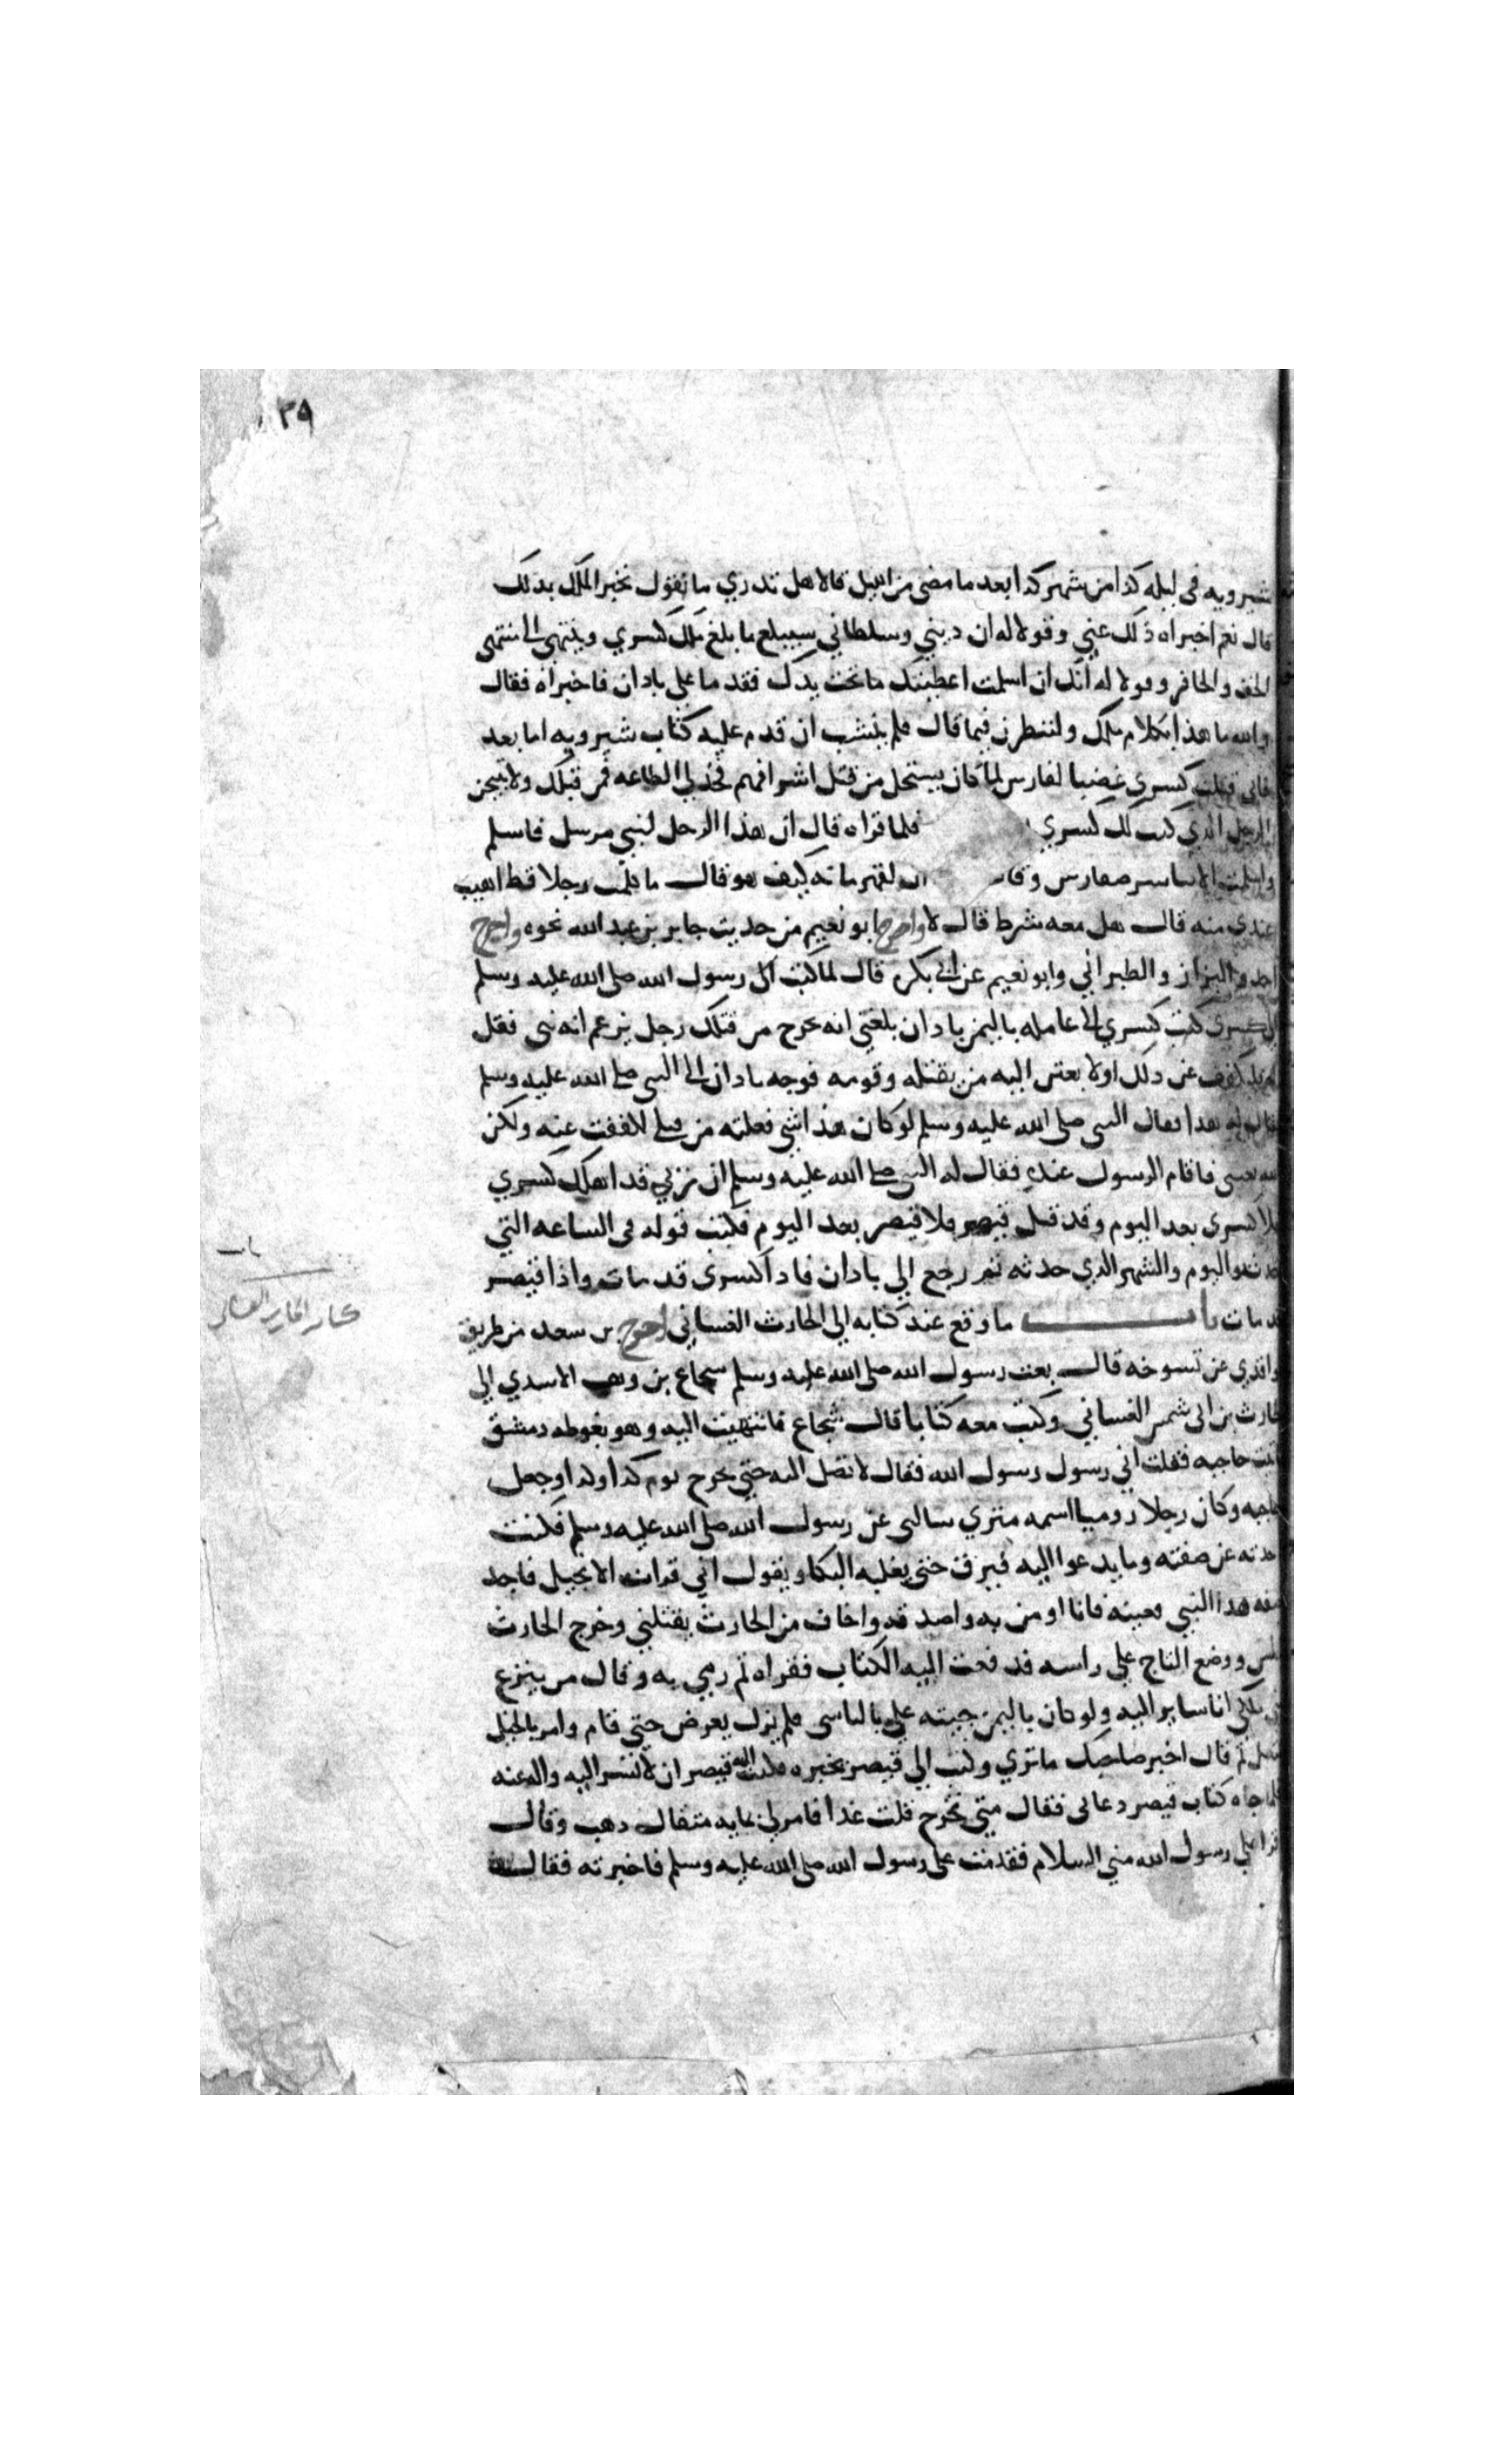 ٢٩
شيرويه فى ليله كذا من شهر كذا بعد ما مضى من الليل قالا هل تدري ما تقول نخبر الملك بذلك
قال نعم اخبراه ذلك عني وقولا له ان ديني وسلطاني سيبلغ ما بلغ ملك كسري وينتهي الى منتهى
الخف والحافر وقولا له انك ان اسلمت اعطيتك ما تحت يدك فقدما على باذان فاخبراه فقال
والله ما هذا بكلام ملك ولننظرن فيما قال فلم ينشب ان قدم عليه كتاب شيرويه اما بعد
فاني قتلت كسري غضبا لفارس لما كان يستحل من قتل اشرافهم فخذ لي الطاعه ممن قبلك ولا تهيجن
الرجل الذي كتب لك كسري فلما قراه قال ان هذا الرجل لنبي مرسل فاسلم
واسلمت الابنا من فارس وقال لقهرمانه كيف هو قال ما كلمت رجلا قط اهيب
عندي منه قال هل معه شرط قال لا واخرج ابو نعيم من حديث جابر بن عبد الله نحوه واخرج
احمد والبزاز والطبراني وابو نعيم عن ابي بكره قال لما كتب رسول الله صلى الله عليه وسلم
الى كسرى كتب كسري الى عامله باليمن باذان بلغني انه خرج من قبلك رجل يزعم انه نبي فقل
له فليكفف عن ذلك او لابعثن اليه من يقتله وقومه فوجه باذان الى النبي صلى الله عليه وسلم
فقال له هذا فقال النبي صلى الله عليه وسلم لو كان هذا شي فعلته من قبلي لاففت عنه ولكن
الله بعثنى فاقام الرسول عنده فقال له النبي صلى الله عليه وسلم ان ربي قد اهلك كسري
فلا كسرى بعد اليوم وقد قتل قيصر فلا قيصر بعد اليوم فكتب قوله فى الساعه التي
حدثه واليوم والشهر الذي حدثه ثم رجع الي باذان فاذا كسرى قد مات واذا قيصر
قد مات باب ما وقع عند كتابه الي الحارث الغساني اخرج بن سعد من طريق
الواقدي عن شيوخه قال بعث رسول الله صلى الله عليه وسلم شجاع بن وهب الاسدي الي
الحارث بن ابى شمر الغساني وكتب معه كتابا قال شجاع فانتهيت اليه وهو بغوطه دمشق
فاتيت حاجبه فقلت اني رسول رسول الله فقال لا تصل اليه حتي يخرج يوم كذا وكذا وجعل
حاجبه وكان رجلا روميا اسمه متري سالني عن رسول الله صلى الله عليه وسلم فكنت
احدثه عن صفته وما يدعوا اليه فيرق حتى يغلبه البكا ويقول اني قرات الانجيل فاجد
صفه هذا النبي بعينه فانا اومن به واصدقه واخاف من الحارث يقتلني وخرج الحارث
فجلس ووضع التاج علي راسه فدفعت اليه الكتاب فقراه ثم رمي به وقال من ينزع
مني ملكي انا ساير اليه ولو كان باليمن جيته علي بالناس فلم يزل يعرض حتي قام وامر بالخيل
تنعل ثم قال اخبر صاحبك ما تري وكتب الي قيصر يخبره فكتب اليه قيصر ان لا تسر اليه واله عنه
فلما جاه كتاب قيصر دعاني فقال متي تخرج قلت غدا فامر لي بمايه مثقال ذهب وقال
اقرا علي رسول الله مني السلام فقدمت علي رسول الله صلى الله عليه وسلم فاخبرته فقال
باب
كتابه الحارث الغساني